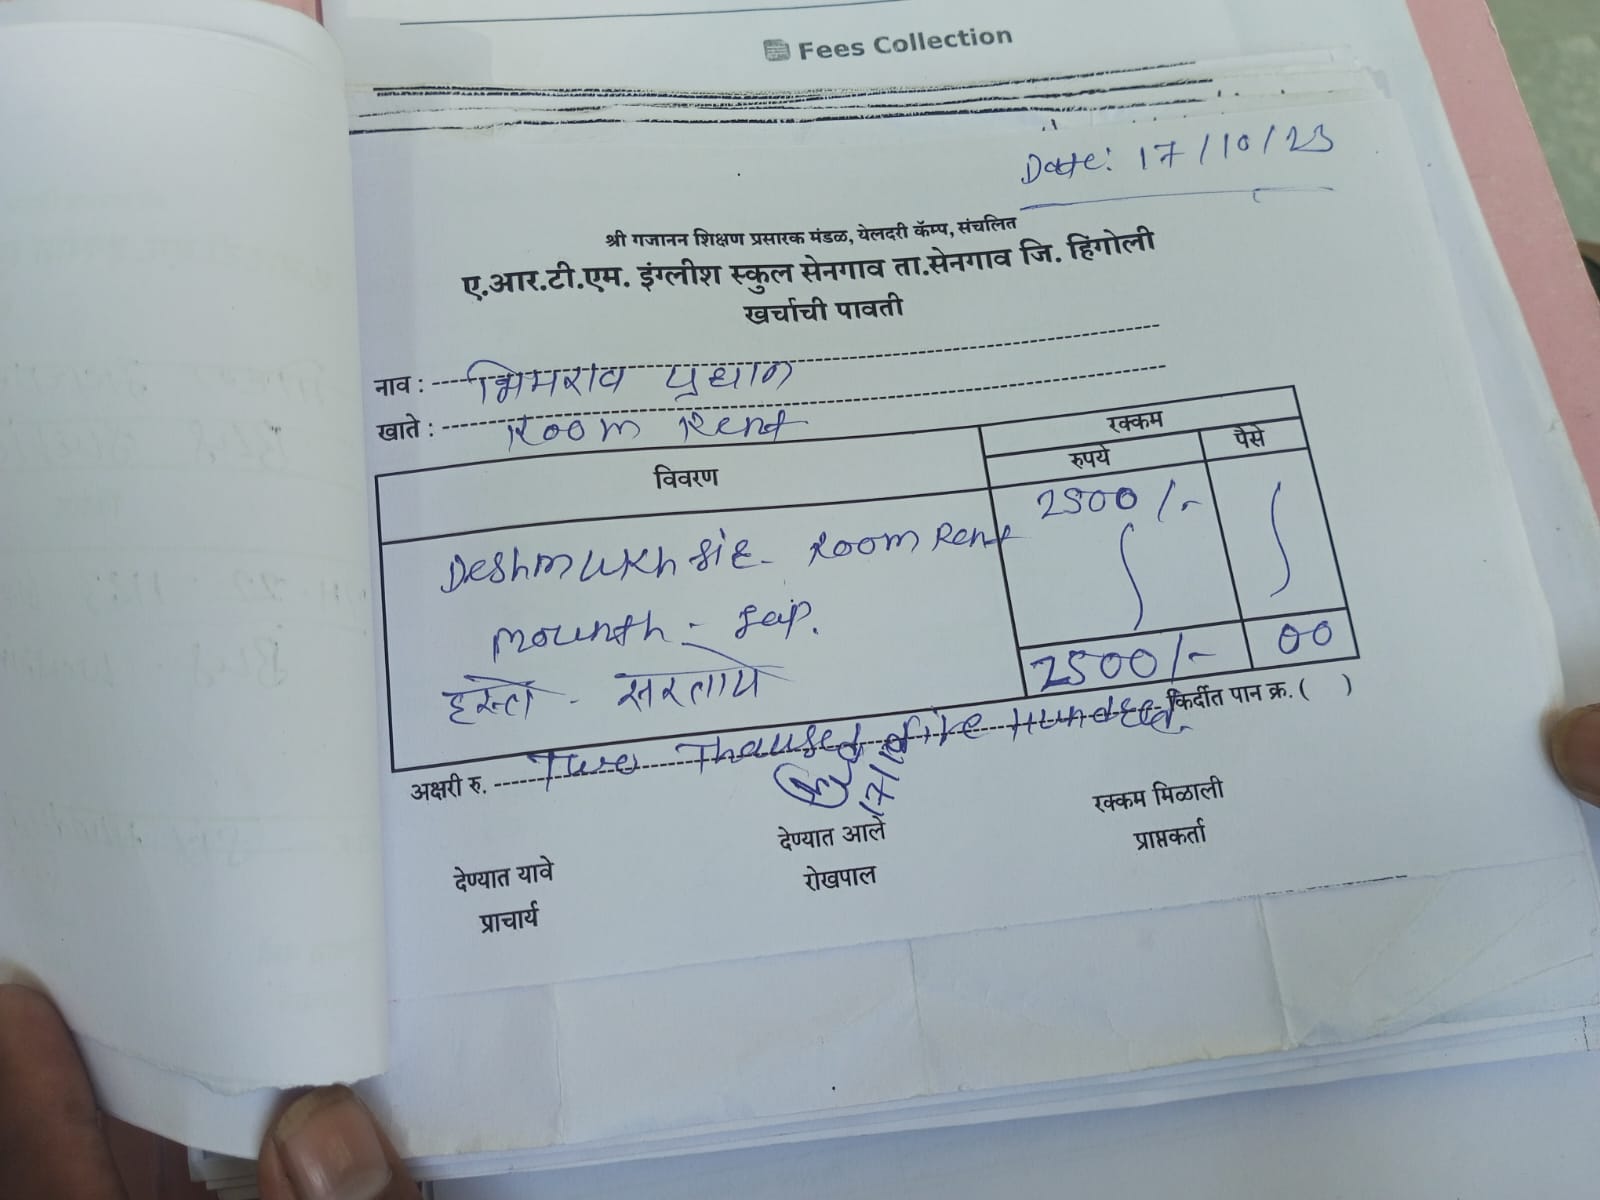 Fees Collection
Date: 17/10/23
श्री गजानन शिक्षण प्रसारक मंडळ, येलदरी कॅम्प, संचलित
ए.आर.टी.एम. इंग्लीश स्कुल सेनगाव ता.सेनगाव जि. हिंगोली
खर्चाची पावती
नाव : भिमराव प्रधान
खाते : Room Rent
विवरण रक्कम
रुपये पैसे
Deshmukh sir - Room Rent 2500/-
mounth - sep.
हस्ते - सरतापे 2500/- 00
किर्दीत पान क्र. ( )
अक्षरी रु. Two Thaused five Hundred.
17/10
देण्यात यावे देण्यात आले रक्कम मिळाली
प्राचार्य रोखपाल प्राप्तकर्ता